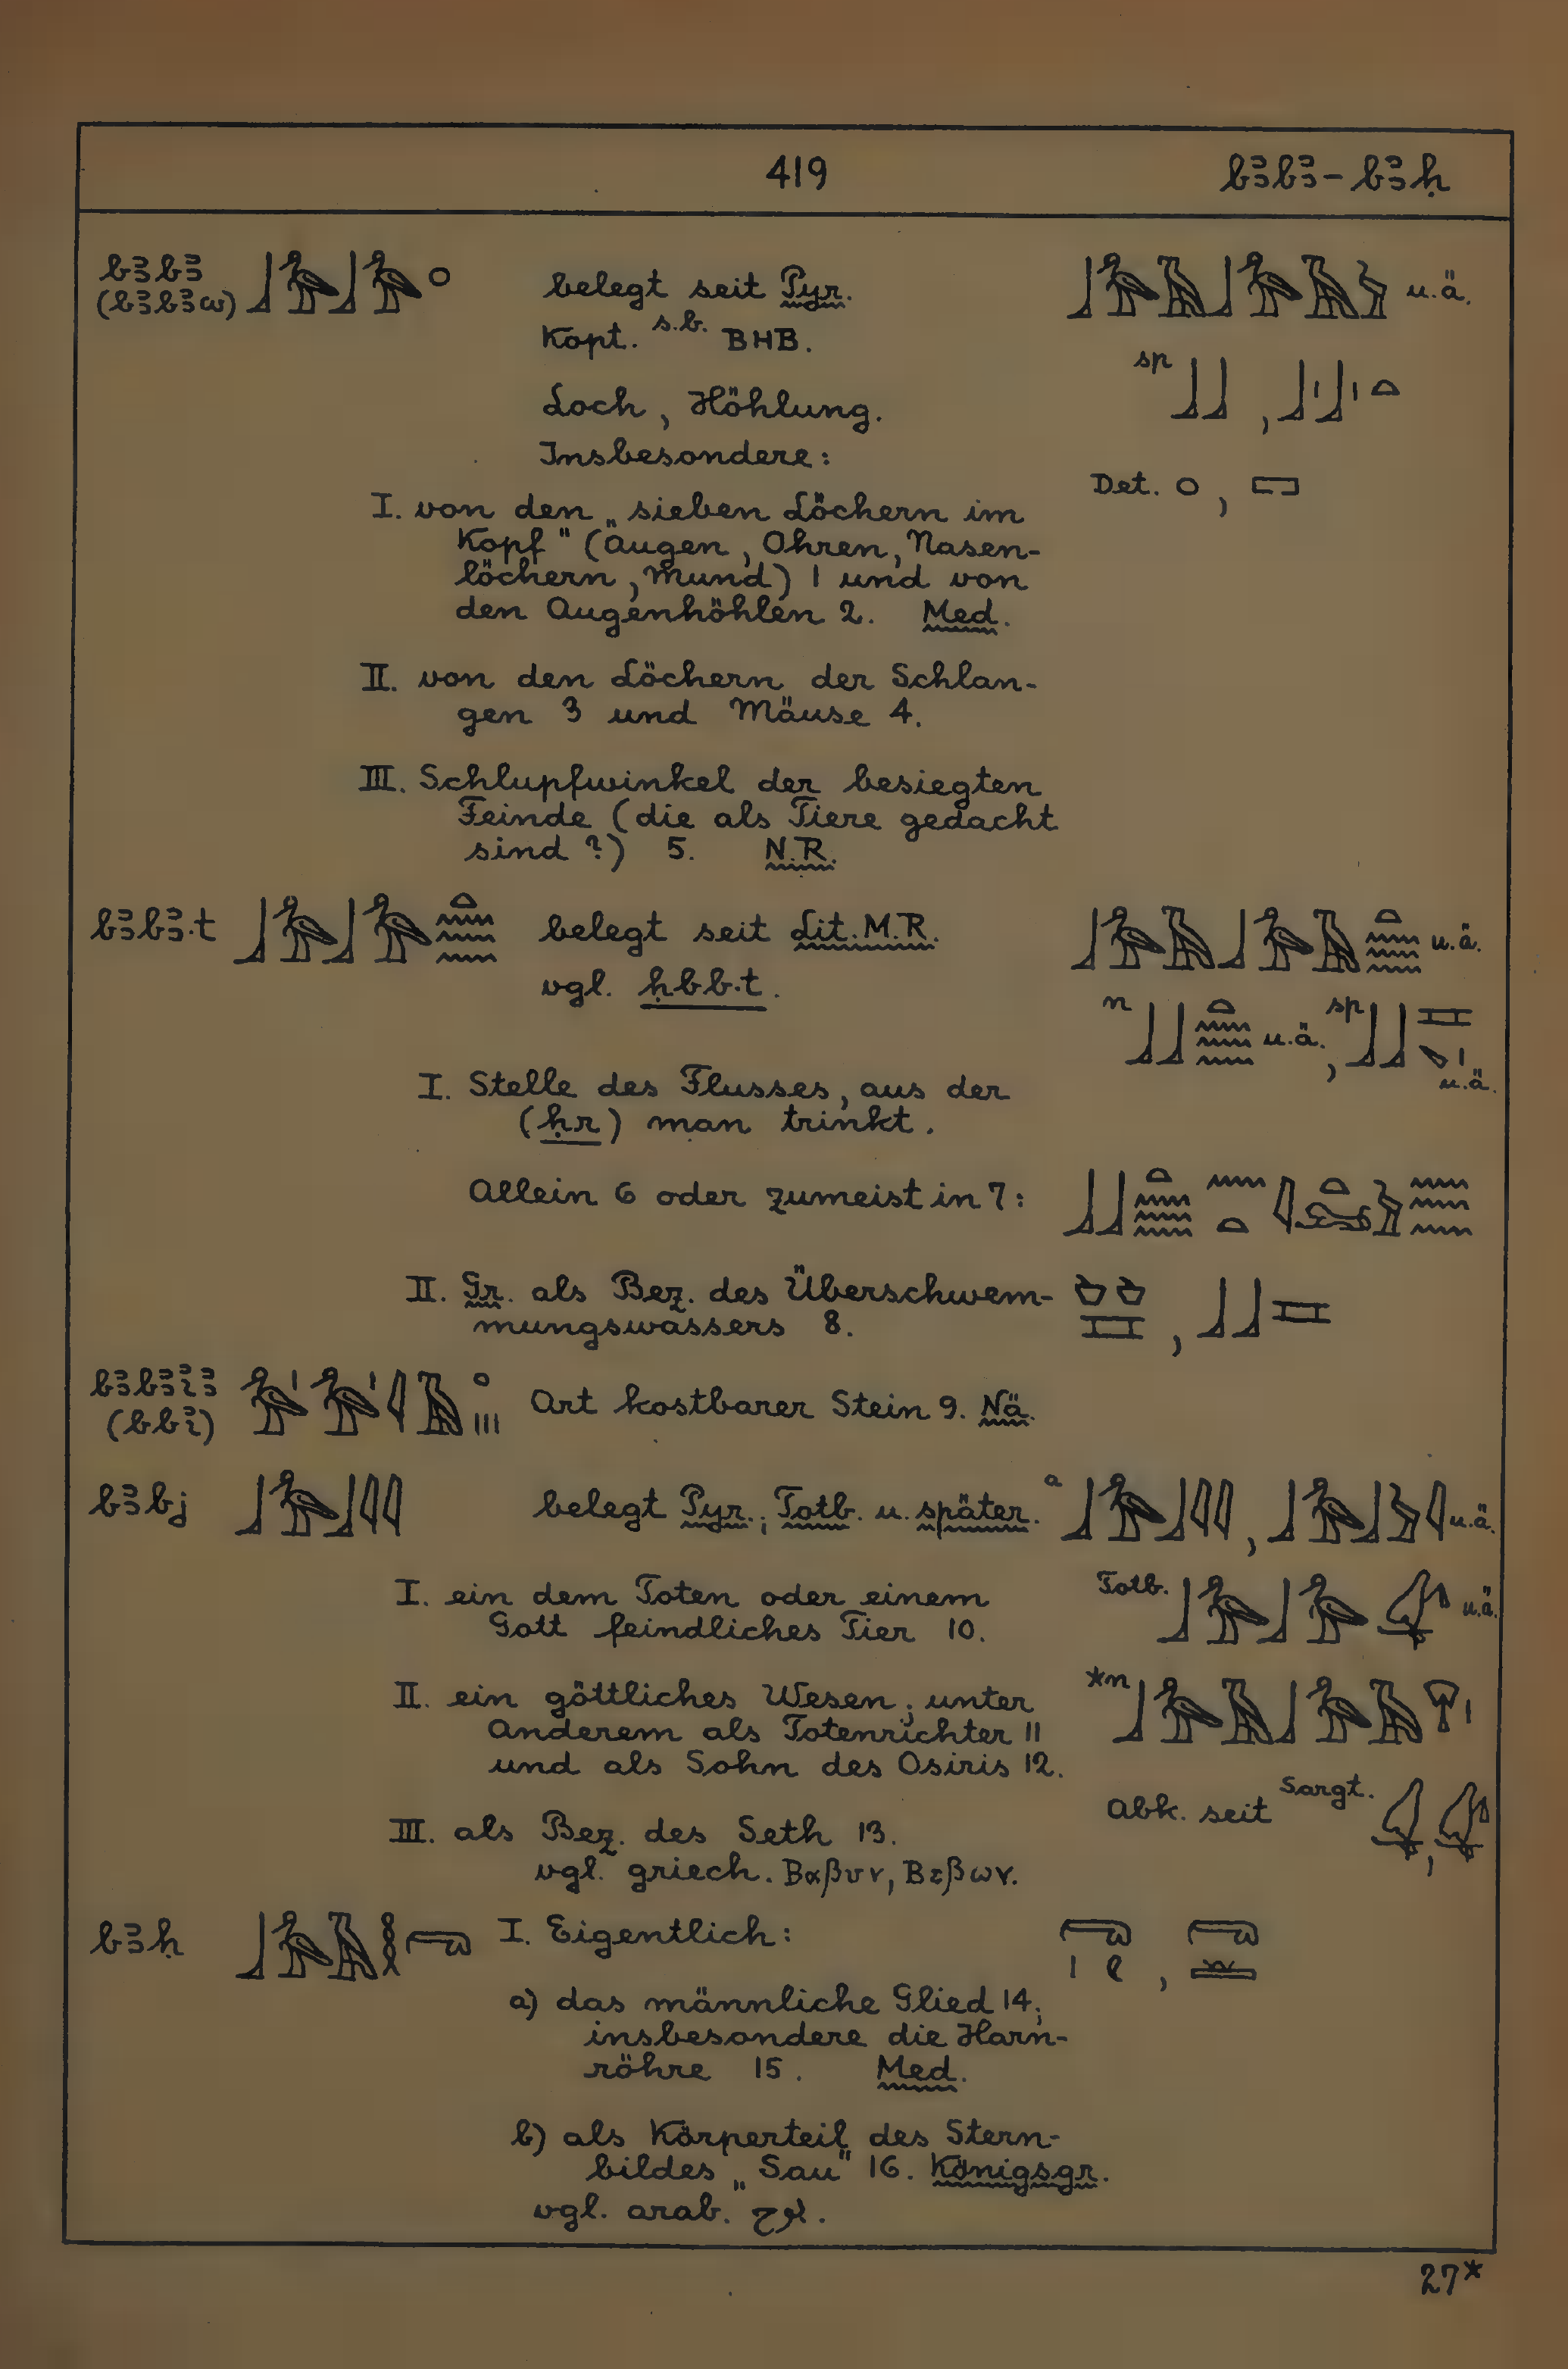 419 bꜣbꜣ - bꜣḥ
bꜣbꜣ
(bꜣbꜣw)
belegt seit Pyr. u.ä.
Kopt. s.b. ⲂⲎⲂ.
sp
Loch, Höhlung.
Insbesondere:
Det.
I. von den „sieben Löchern im
Kopf" (Augen, Ohren, Nasen-
löchern, Mund) 1 und von
den Augenhöhlen 2. Med.
II. von den Löchern der Schlan-
gen 3 und Mäuse 4.
III. Schlupfwinkel der besiegten
Feinde (die als Tiere gedacht
sind?) 5. N.R.
bꜣbꜣ.t belegt seit Lit. M.R. u.ä.
vgl. ḥbb.t.
n u.ä., sp u.ä.
I. Stelle des Flusses, aus der
(ḥr) man trinkt.
Allein 6 oder zumeist in 7:
II. Gr. als Bez. des Überschwem-
mungswassers 8.
bꜣbꜣꞽꜣ
(bbꞽ)
Art kostbarer Stein 9. Nä.
bꜣbj belegt Pyr.; Totb. u. später. a u.ä.
I. ein dem Toten oder einem
Gott feindliches Tier 10.
Totb. u.ä.
II. ein göttliches Wesen; unter
Anderem als Totenrichter 11
und als Sohn des Osiris 12.
*n
Abk. seit Sargt.
III. als Bez. des Seth 13.
vgl. griech. Βαβυν, Βεβων.
bꜣḥ I. Eigentlich:
a) das männliche Glied 14;
insbesondere die Harn-
röhre 15. Med.
b) als Körperteil des Stern-
bildes „Sau" 16. Königsgr.
vgl. arab.
27*